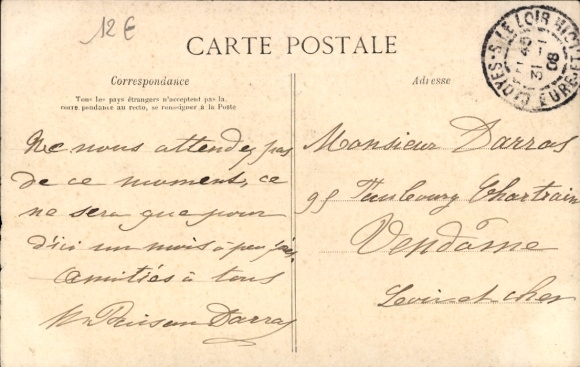 12€
CARTE POSTALE
Correspondance
Tous les pays étrangers n'acceptent pas la
corre pondance au recto, se renseigner à la Poste
Ne nous attendez pas
de ce moment, ce
ne sera que pour
d'ici un mois à peu près,
Amitiés à tous
Darras
Adresse
Monsieur Darras
95 Faubourg Chartrain
Vendôme
Loir et Cher
CLOYES-S-LE LOIR
EURE-ET-L
31 - 1
08